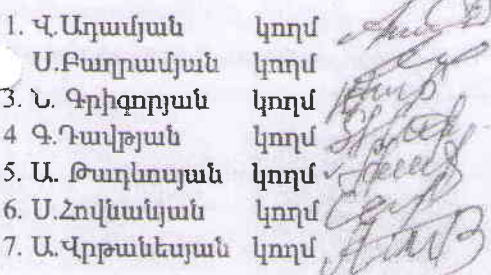 1. Վ.Ադամյան կողմ
Ս.Բաղրամյան կողմ
3. Ն. Գրիգորյան կողմ
4 Գ.Դավթյան կողմ
5. Ա. Թադևոսյան կողմ
6. Ս.Հովնանյան կողմ
7. Ա.Վրթանեսյան կողմ